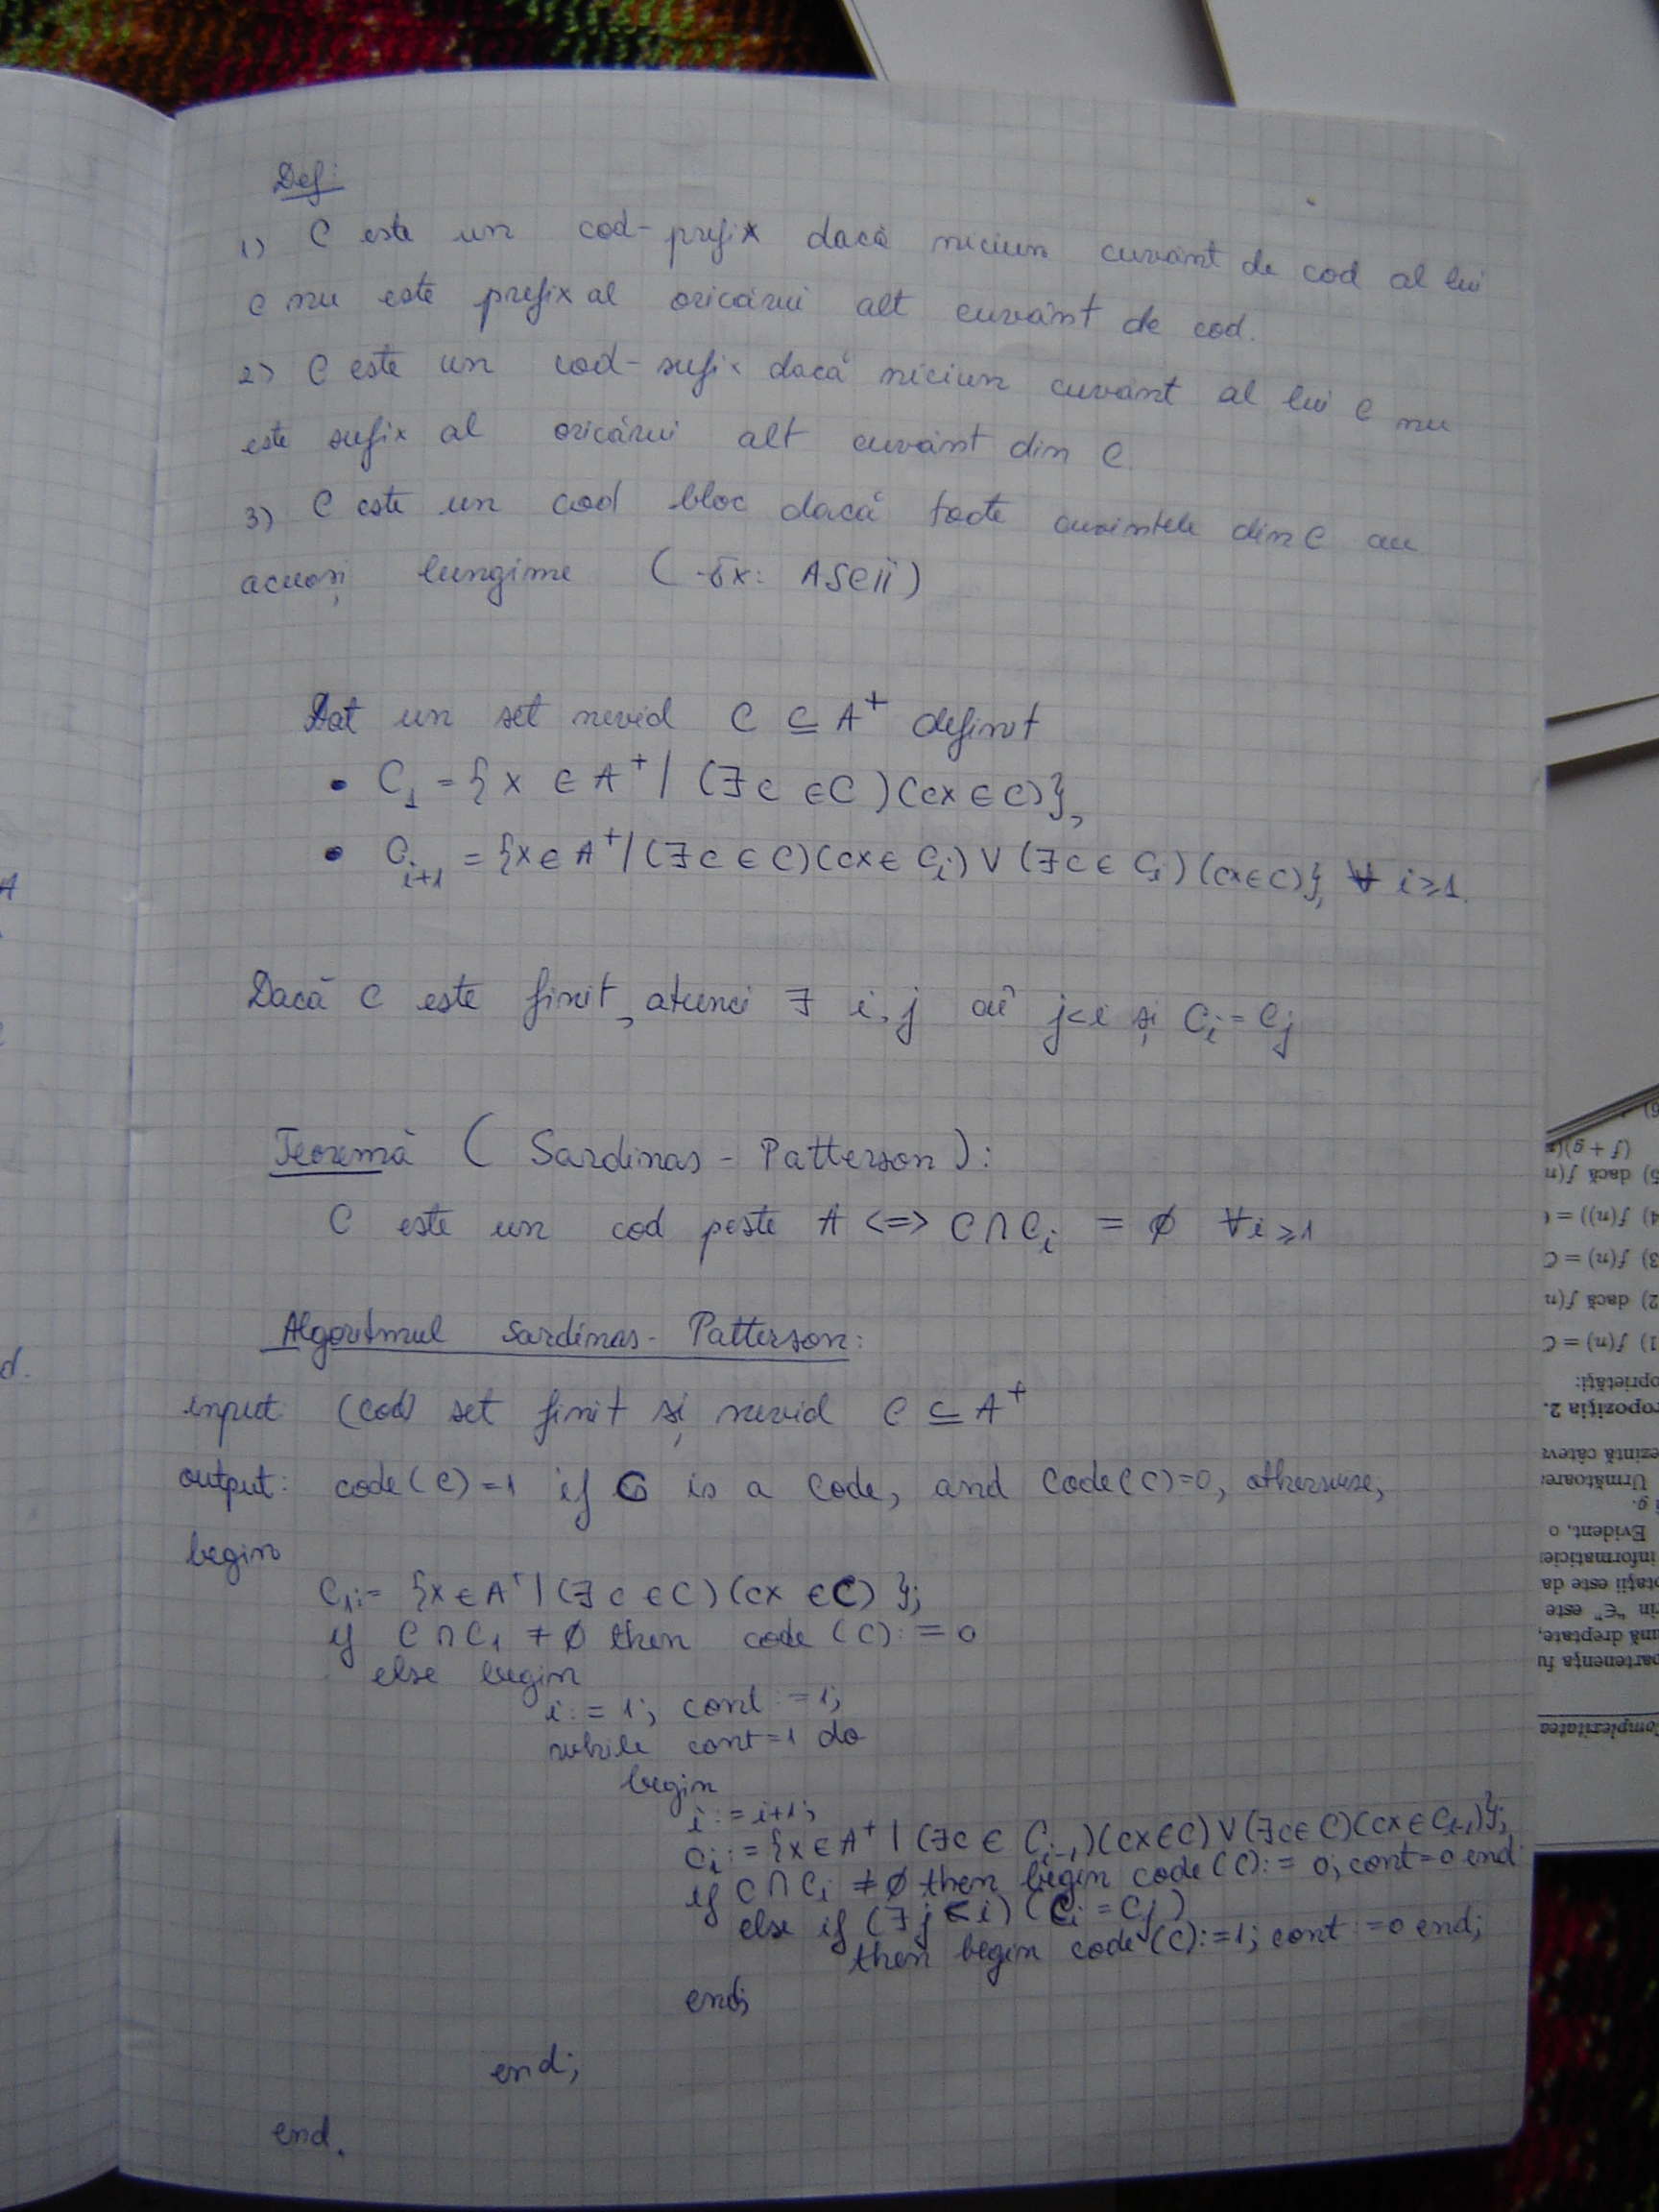 Def:
1) C este un cod-prefix dacă niciun cuvânt de cod al lui
C nu este prefix al oricărui alt cuvânt de cod.
2) C este un cod-sufix dacă niciun cuvânt al lui C nu
este sufix al oricărui alt cuvânt din C.
3) C este un cod bloc dacă toate cuvintele din C au
aceeași lungime (Ex: ASCII)
Dat un set nevid C ⊆ A⁺ definit
• C₁ = {x ∈ A⁺ | (∃c ∈ C)(cx ∈ C)},
• Cᵢ₊₁ = {x ∈ A⁺ | (∃c ∈ C)(cx ∈ Cᵢ) ∨ (∃c ∈ Cᵢ)(cx ∈ C)}, ∀ i ≥ 1.
Dacă C este finit, atunci ∃ i, j aî j < i și Cᵢ = Cⱼ
Teoremă (Sardinas - Patterson):
C este un cod peste A <=> C ∩ Cᵢ = ∅ ∀i ≥ 1
Algoritmul Sardinas - Patterson:
input: (cod) set finit și nevid C ⊆ A⁺
output: code(C)=1 if C is a code, and Code(C)=0, otherwise;
begin
C₁:= {x ∈ A⁺ | (∃c ∈ C)(cx ∈ C) };
if C ∩ C₁ ≠ ∅ then code (C) := 0
else begin
i := 1; cont := 1;
while cont=1 do
begin
i := i+1;
Cᵢ := {x ∈ A⁺ | (∃c ∈ Cᵢ₋₁)(cx ∈ C) ∨ (∃c ∈ C)(cx ∈ Cᵢ₋₁)};
if C ∩ Cᵢ ≠ ∅ then begin code(C) := 0; cont=0 end
else if (∃j < i) (Cᵢ = Cⱼ)
then begin code(C):=1; cont :=0 end;
end;
end;
end.
Complexitatea
partenența fu
ună dreptate,
rin "∈" este
tății este da
informaticie
Evident, o
i g.
Următoare
ezintă câteva
ropoziția 2.
oprietăți:
1) f(n) = C
2) dacă f(n
3) f(n) = C
4) f(n)) =
5) dacă f(n
(f + g)(
6)
A
d.